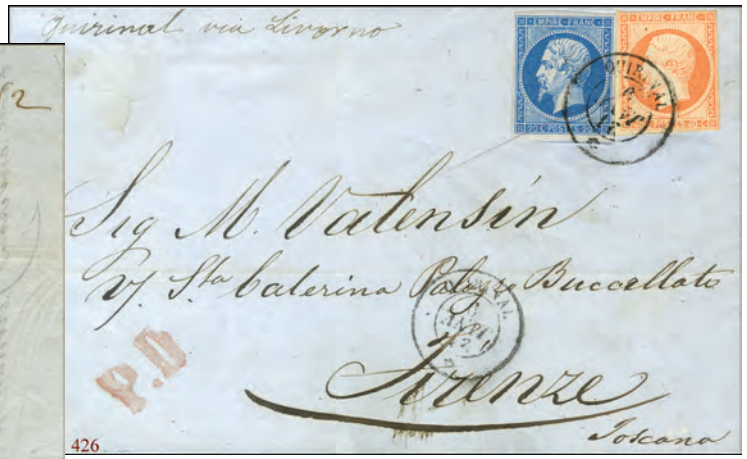 Quirinal via Livorno
EMPIRE FRANC
20 C POSTES 20 C
EMPIRE FRANC
QUIRINAL
Sig M. Valensin
V/ Sta Caterina Palazzo Buccellato
QUIRINAL
P.D
Firenze
Toscana
426